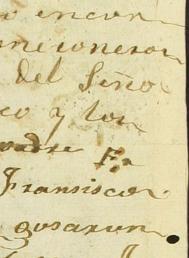 o encon
misionero
del Seño
co y los
padre Fr
Fransisco
gosarun